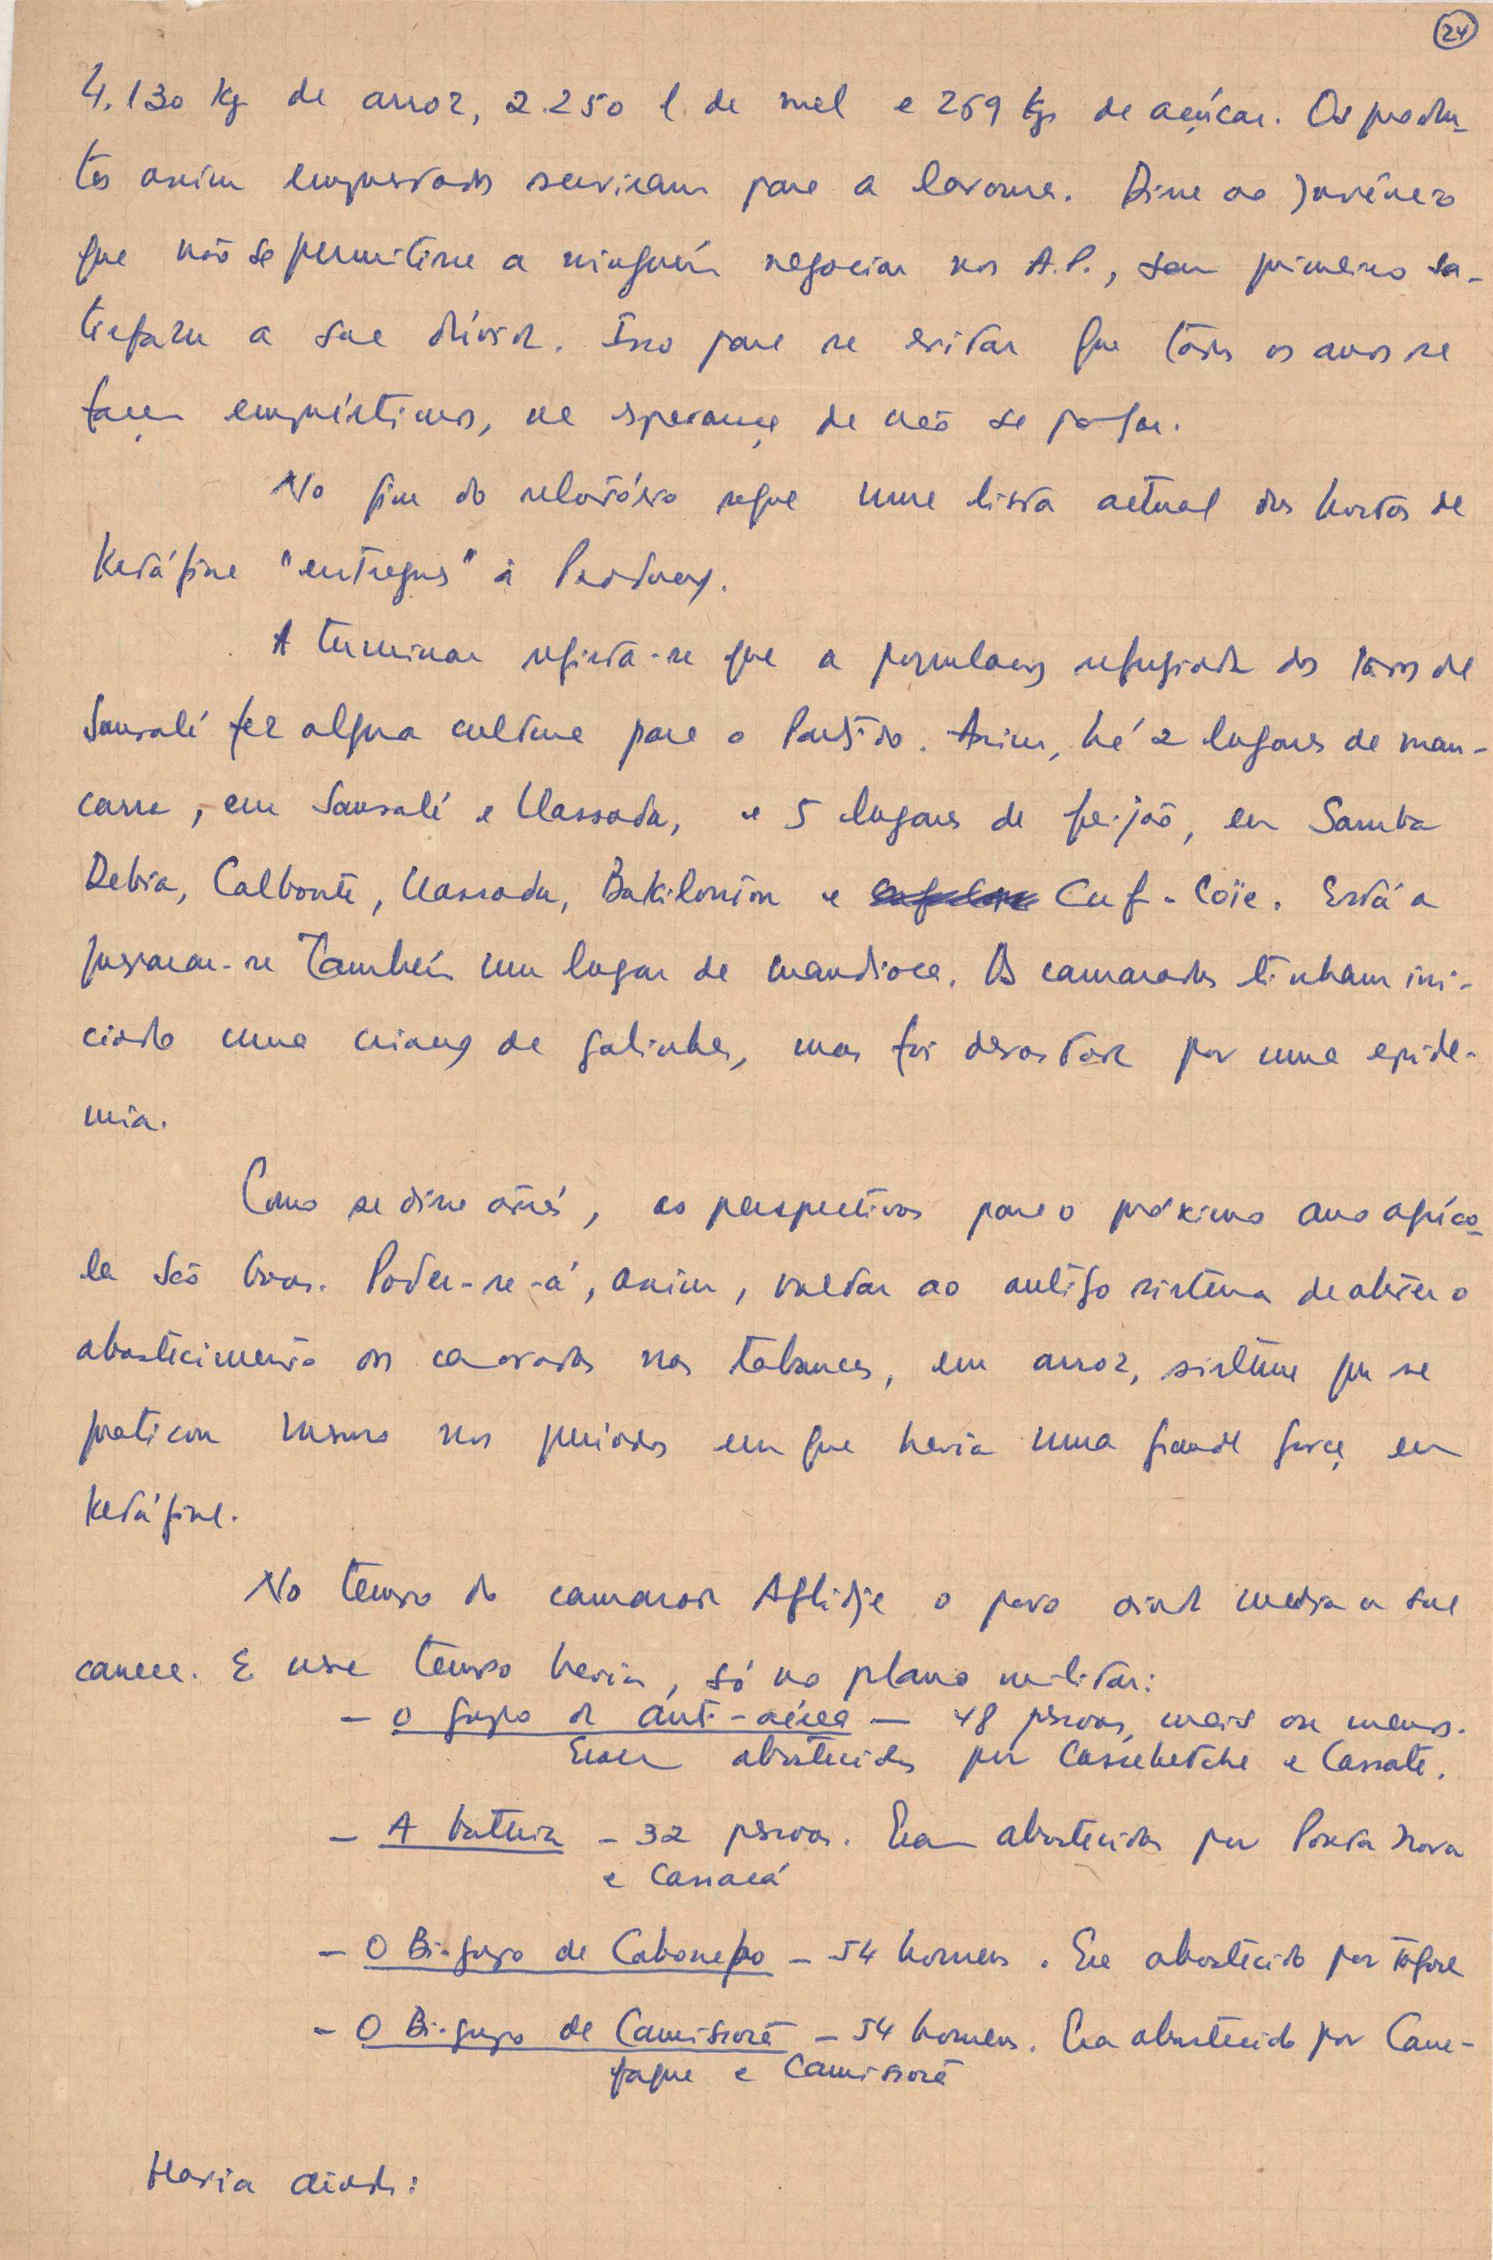 24
4.130 kg de arroz, 2.250 l. de mel e 269 kgs de açúcar. Os produ-
tos assim emprestados serviram para a lavoura. Disse ao Juvêncio
que não se permitisse a ninguém negociar nos A.P., sem primeiro sa-
tisfazer a sua dívida. Isso para se evitar que todos os anos se
façam empréstimos, na esperança de não se pagar.
No fim do relatório segue uma lista actual das hortas de
Ketáfine "entregues" à Produção.
A terminar regista-se que a população refugiada da zona de
Sansalé fez alguma cultura para o Partido. Assim, há 2 lugares de man-
carra, em Sansalé e Uassada, e 5 lugares de feijão, em Samba
Debia, Calbonte, Uassada, Bakilonton e Cuf-Coïe. Está a
preparar-se também um lugar de mandioca. Os camaradas tinham ini-
ciado uma criação de galinhas, mas foi devastada por uma epide-
mia.
Como se disse atrás, as perspectivas para o próximo ano agríco-
la são boas. Poder-se-á, assim, voltar ao antigo sistema de abster o
abastecimento dos camaradas nas tabancas, em arroz, sistema que se
praticou mesmo nos períodos em que havia uma grande força em
Ketáfine.
No tempo do camarada Aglidje o povo ainda media a sua
caneca. E nesse tempo havia, só no plano militar:
- O grupo da anti-aérea - 48 pessoas, mais ou menos.
Eram abastecidos por Cassebetche e Cassate.
- A bateria - 32 pessoas. Eram abastecidas por Ponta Nova
e Cassacá
- O Bi-grupo de Cabonepo - 54 homens. Era abastecido por
- O Bi-grupo de Camissorã - 54 homens. Era abastecido por Cane-
faque e Camissorã
Havia ainda: